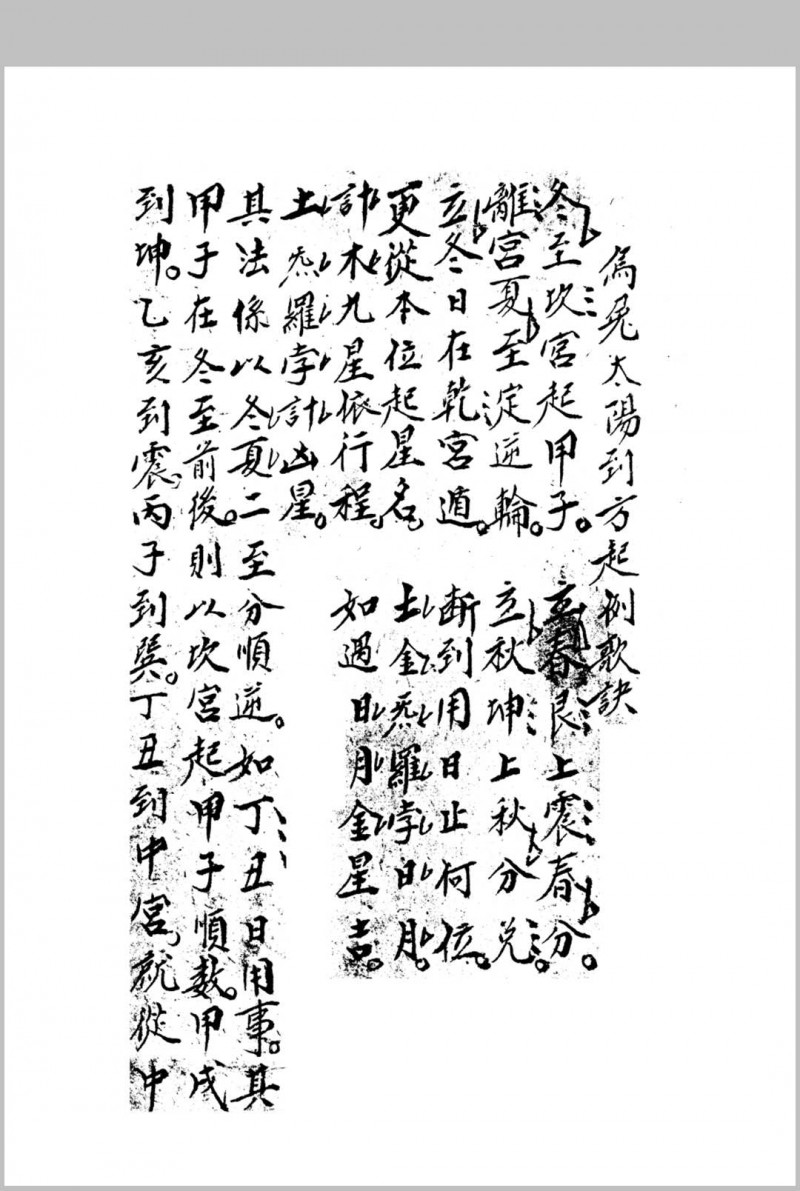 烏兔太陽到方起例歌訣
冬至坎宮起甲子。立春艮上震春分。
離宮夏至定逆輪。立秋坤上秋分兌。
立冬日在乾宮遁。斷到用日止何位。
更從本位起星名。土金炁羅孛日月。
計木九星依行程。如遇日月金星吉。
土炁羅孛計凶星。
其法係以冬夏二至分順逆。如丁丑日用事。其
甲子在冬至前後。則以坎宮起甲子順數。甲戌
到坤。乙亥到震。丙子到巽。丁丑到中宮。就從中